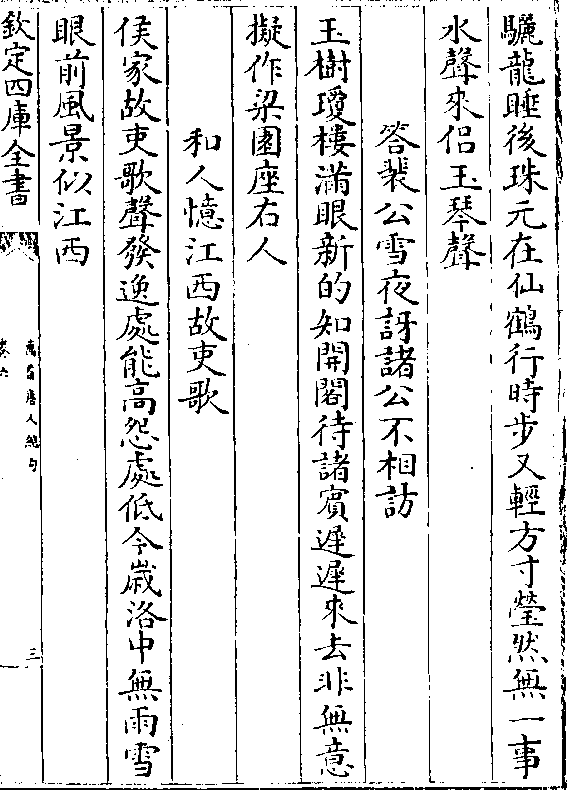 驪龍睡後珠元在仙鶴行時步又輕方寸瑩然無一事
水聲來侶玉琴聲
答裴公雪夜訝諸公不相訪
玉樹瓊樓滿眼新的知開閣待諸賓遲遲來去非無意
擬作梁園座右人
和人憶江西故吏歌
侯家故吏歌聲發逸處能高怨處低今歲洛中無雨雪
眼前風景似江西
欽定四庫全書
萬首唐人絶句
卷六
三